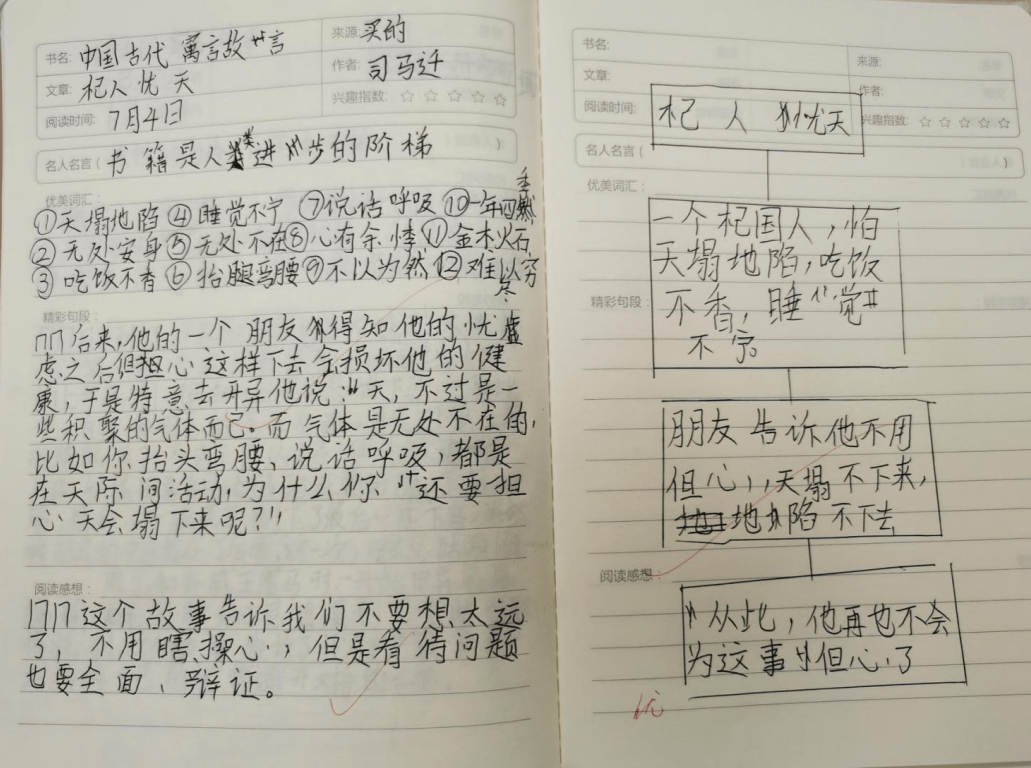 书名: 中国古代寓言故言
来源: 买的
文章: 杞人忧天
作者: 司马迁
阅读时间: 7月4日
兴趣指数: ☆ ☆ ☆ ☆ ☆
名人名言 ( 书籍是人类进步的阶梯 )
优美词汇:
①天塌地陷 ④睡觉不宁 ⑦说话呼吸 ⑩一年四季
②无处安身 ⑤无处不在 ⑧心有余悸 ⑪金木火石
③吃饭不香 ⑥抬腿弯腰 ⑨不以为然 ⑫难以穷尽
精彩句段:
后来,他的一个朋友得知他的忧虑
虑之后但心这样下去会损坏他的健
康,于是特意去开导他说:“天,不过是一
些积聚的气体而已.而气体是无处不在的,
比如你抬头弯腰、说话呼吸,都是
在天际间活动,为什么你还要担
心天会塌下来呢?”
阅读感想:
这个故事告诉我们不要想太远
了,不用瞎操心,但是看待问题
也要全面、辩证。
书名:
来源:
文章:
作者:
阅读时间:
兴趣指数: ☆ ☆ ☆ ☆ ☆
杞人忧天
名人名言 ( )
优美词汇:
一个杞国人,怕
天塌地陷,吃饭
精彩句段:
不香,睡觉
不宁。
朋友告诉他不用
但心,天塌不下来,
地陷不下去
阅读感想:
从此,他再也不会
为这事但心了
优